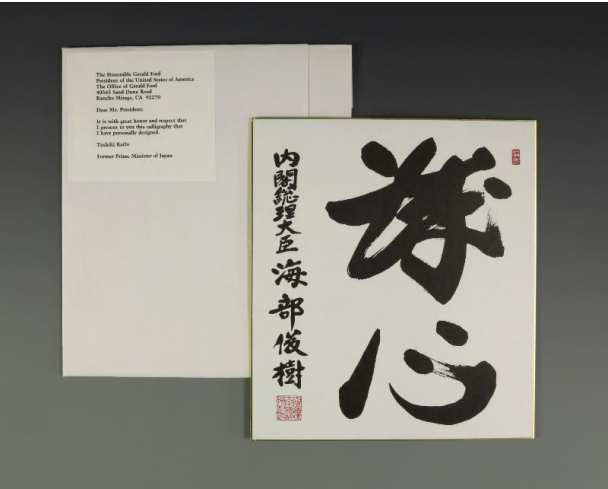 The Honorable Gerald Ford
President of the United States of America
The Office of Gerald Ford
40365 Sand Dune Road
Rancho Mirage, CA 92270
Dear Mr. President:
It is with great honor and respect that
I present to you this calligraphy that
I have personally designed.
Toshiki Kaifu
Former Prime Minister of Japan
誠心
内閣総理大臣 海部俊樹